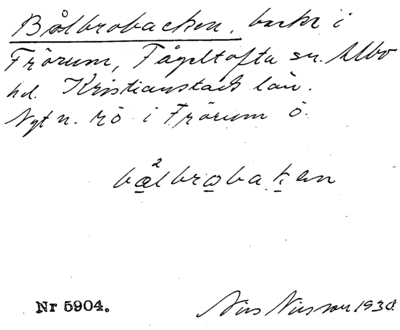 Bålbrobacken, backe i
Frörum, Fågeltofta sn. Albo
hd. Kristianstads län.
Nytn. rö i Frörum ö.
bå²lbrobaken
Nr 5904.
Nils Nilsson 1930.